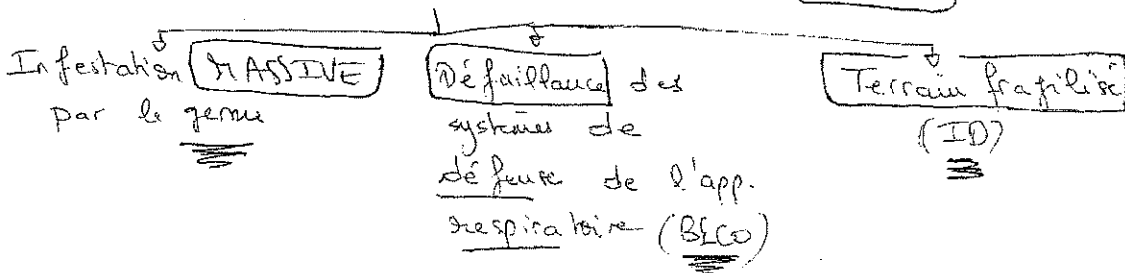 Infestation MASSIVE
par le germe
Défaillance des
systèmes de
défense de l'app.
respiratoire (BPCO)
Terrain fragilisé
(ID)